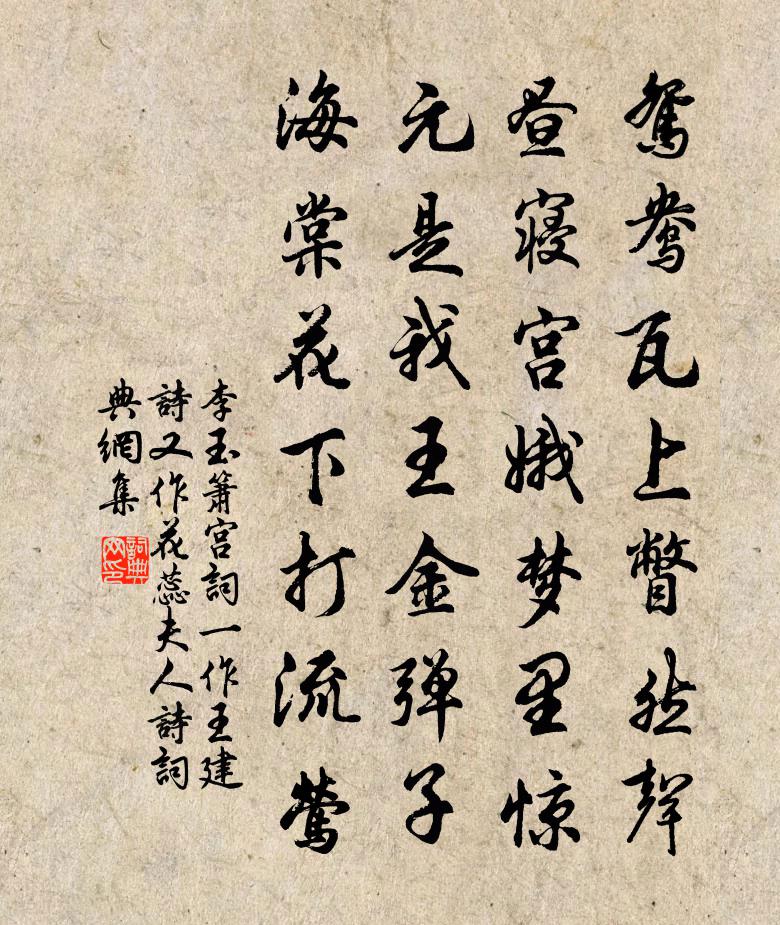 鸳鸯瓦上瞥然聲
昼寝宫娥梦里惊
元是我王金弹子
海棠花下打流莺
李玉箫宫詞一作王建
詩又作花蕊夫人詩詞
典網集
詞典
网印